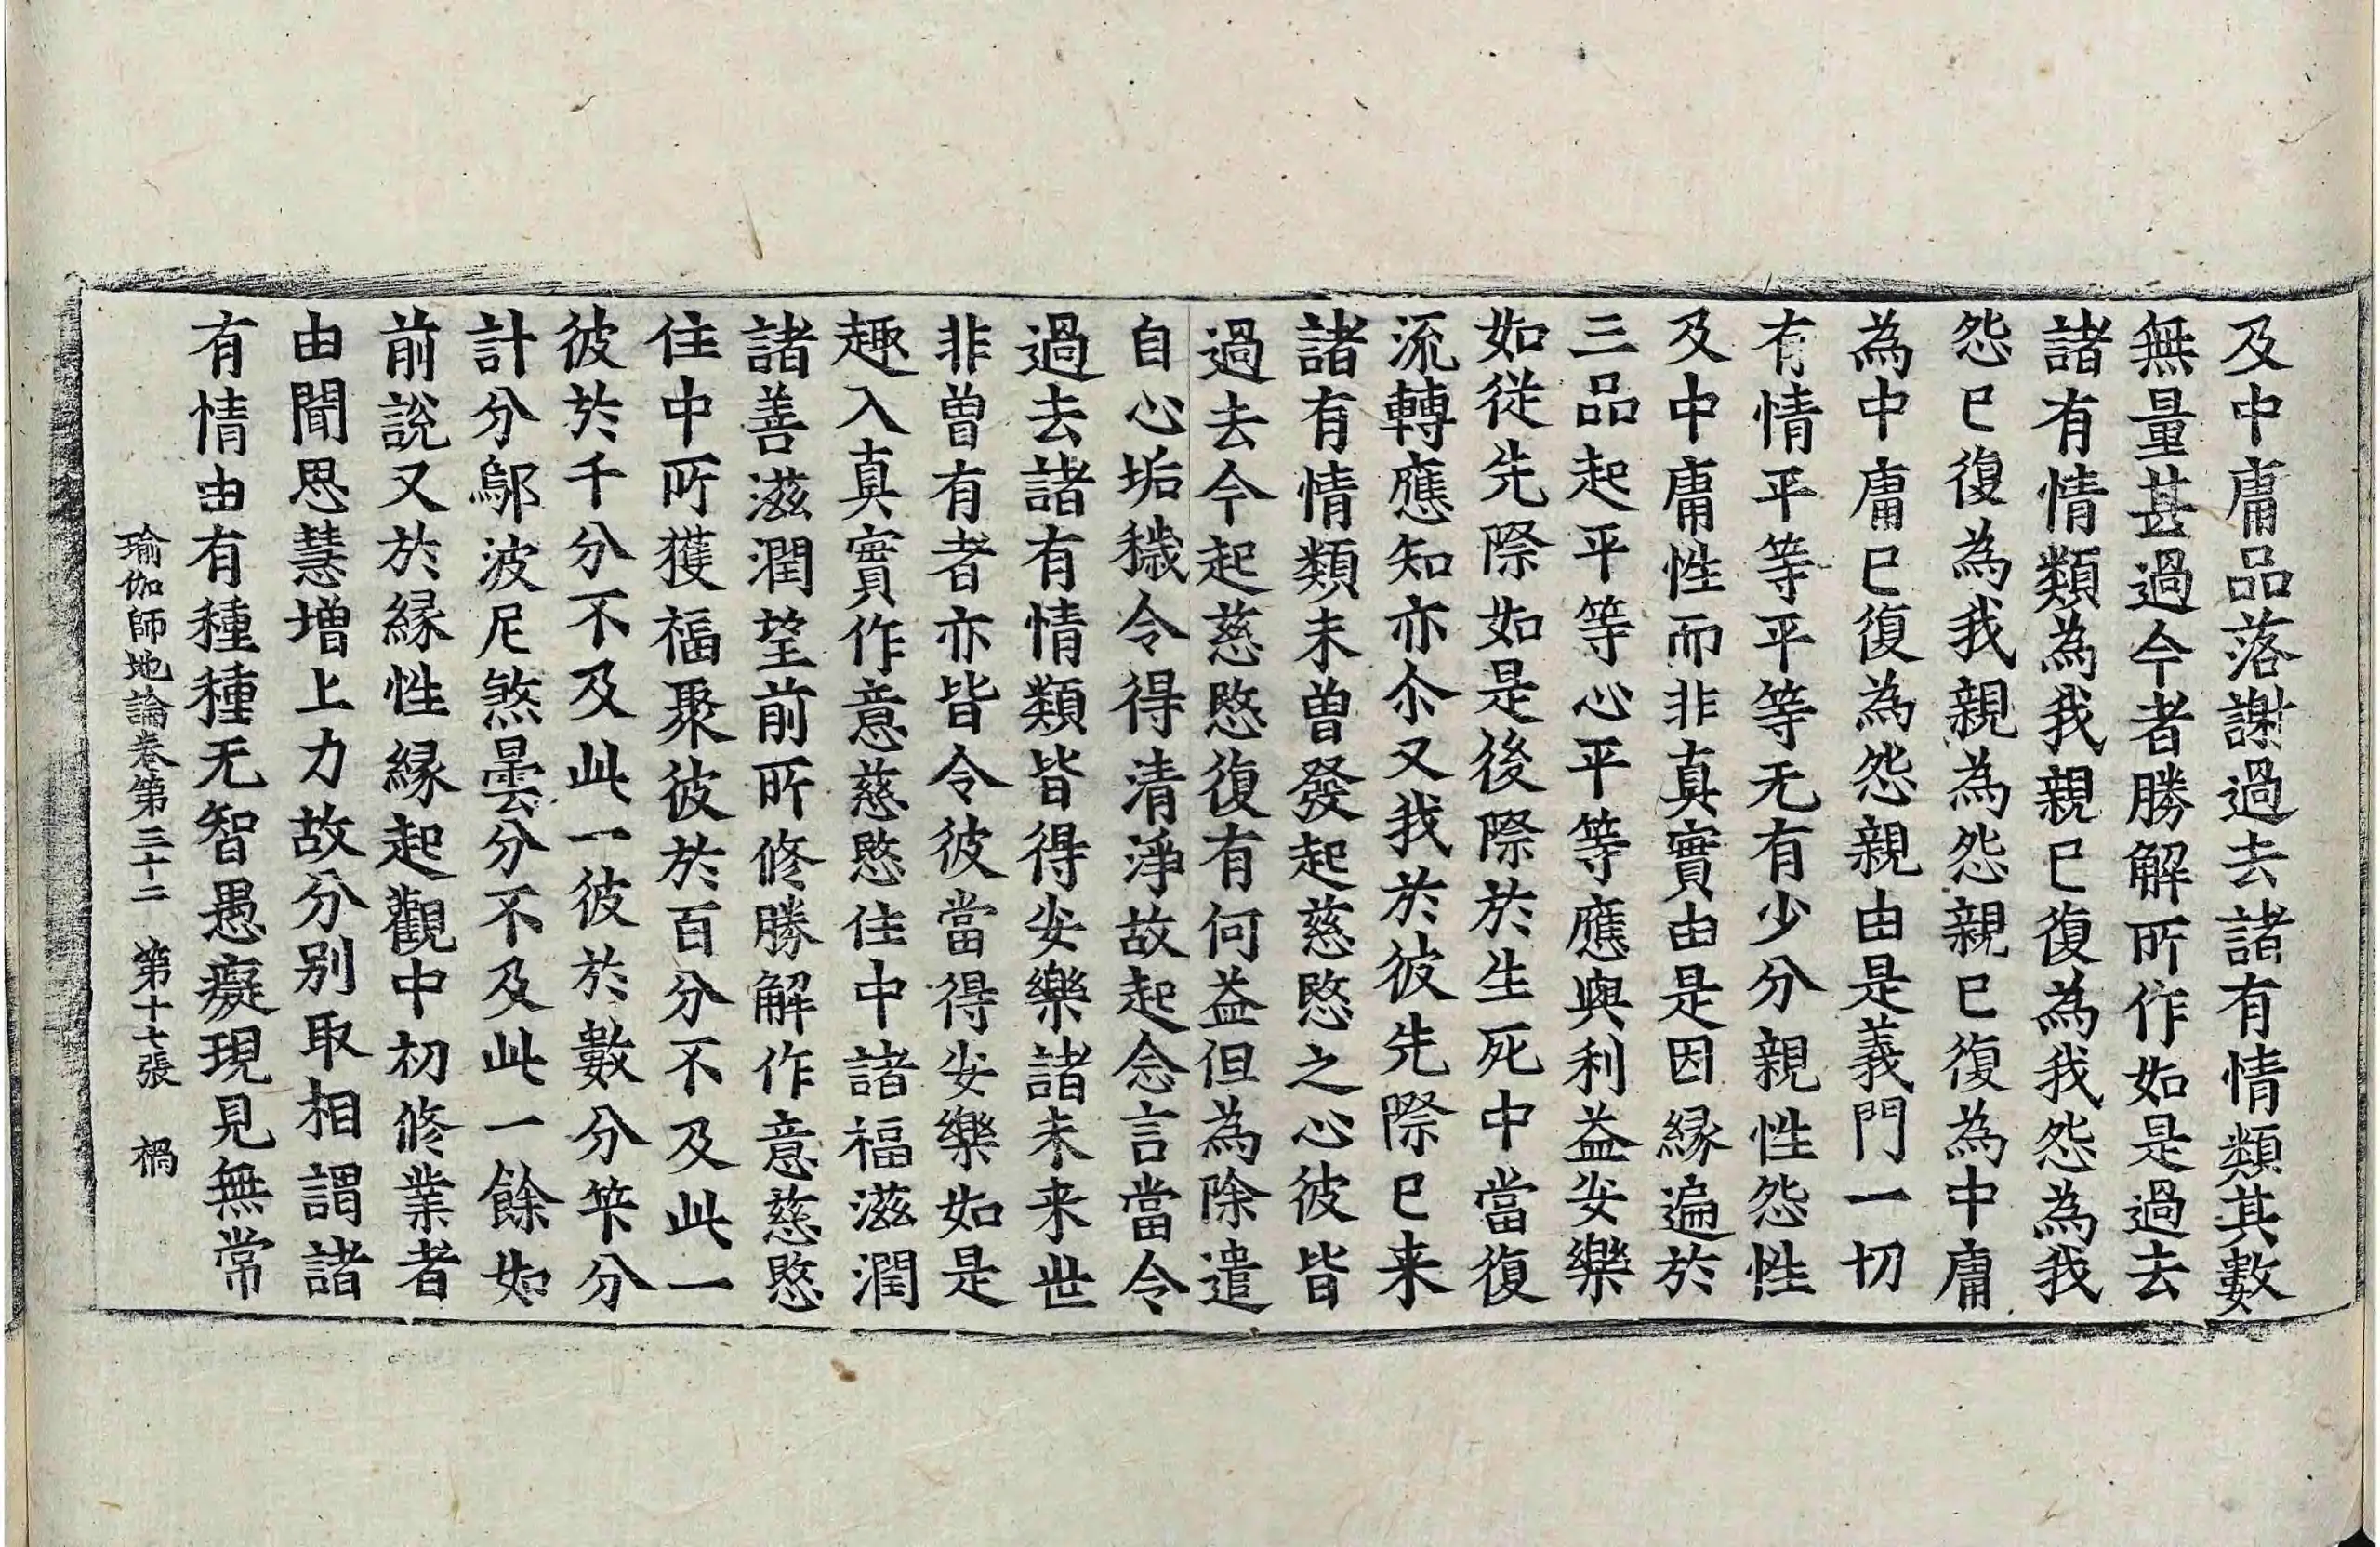 及中庸品落謝過去諸有情類其數
無量甚過今者勝解所作如是過去
諸有情類為我親已復為我怨為我
怨已復為我親為怨親已復為中庸
為中庸已復為怨親由是義門一切
有情平等平等无有少分親性怨性
及中庸性而非真實由是因縁遍於
三品起平等心平等應與利益安樂
如從先際如是後際於生死中當復
流轉應知亦尒又我於彼先際已来
諸有情類未曾發起慈愍之心彼皆
過去今起慈愍復有何益但為除遣
自心垢穢令得清淨故起念言當令
過去諸有情類皆得安樂諸未来世
非曾有者亦皆令彼當得安樂如是
趣入真實作意慈愍住中諸福滋潤
諸善滋潤望前所修勝解作意慈愍
住中所獲福聚彼於百分不及此一
彼於千分不及此一彼於數分笇分
計分鄔波尼煞曇分不及此一餘如
前說又於縁性縁起觀中初修業者
由聞思慧增上力故分別取相謂諸
有情由有種種无智愚癡現見無常
瑜伽師地論卷第三十二 第十七張 禍